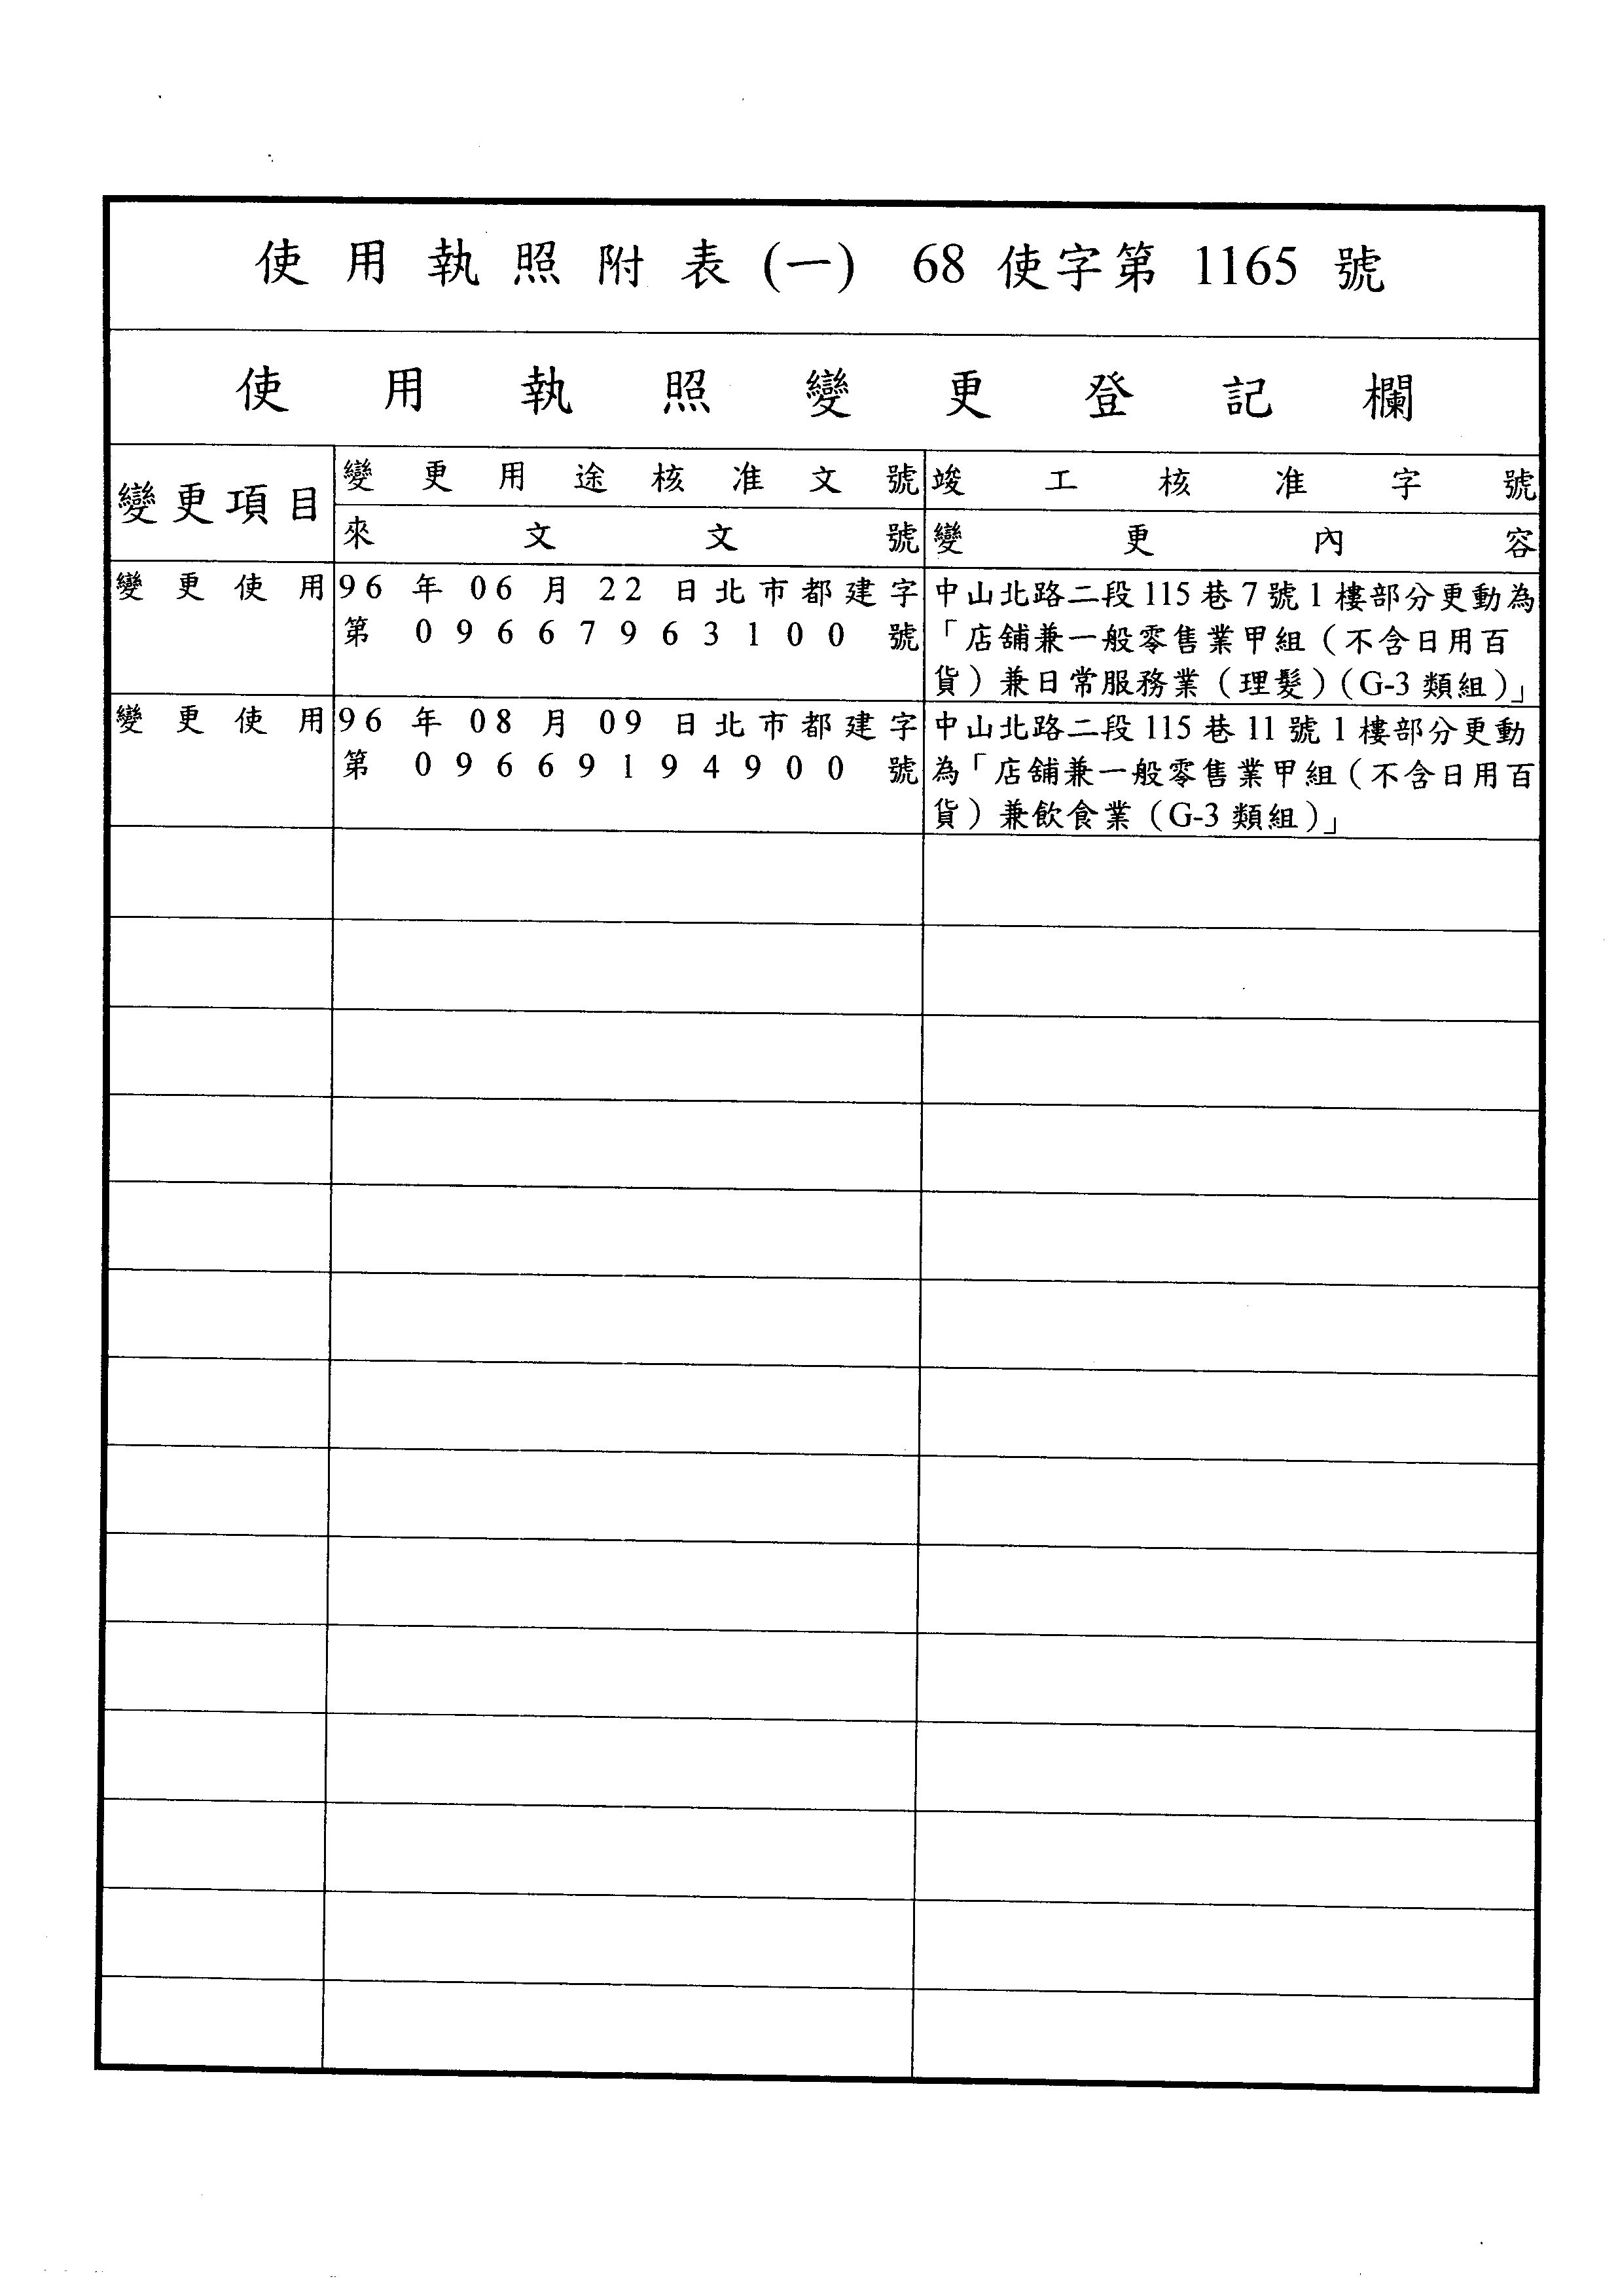 使用執照附表(一) 68使字第1165號
使用執照變更登記欄
變更項目
變更用途核准文號
竣工核准字號
來文文號
變更內容
變更使用
96年06月22日北市都建字
第09667963100號
中山北路二段115巷7號1樓部分更動為
「店舖兼一般零售業甲組（不含日用百
貨）兼日常服務業（理髮）（G-3類組）」
變更使用
96年08月09日北市都建字
第09669194900號
中山北路二段115巷11號1樓部分更動
為「店舖兼一般零售業甲組（不含日用百
貨）兼飲食業（G-3類組）」